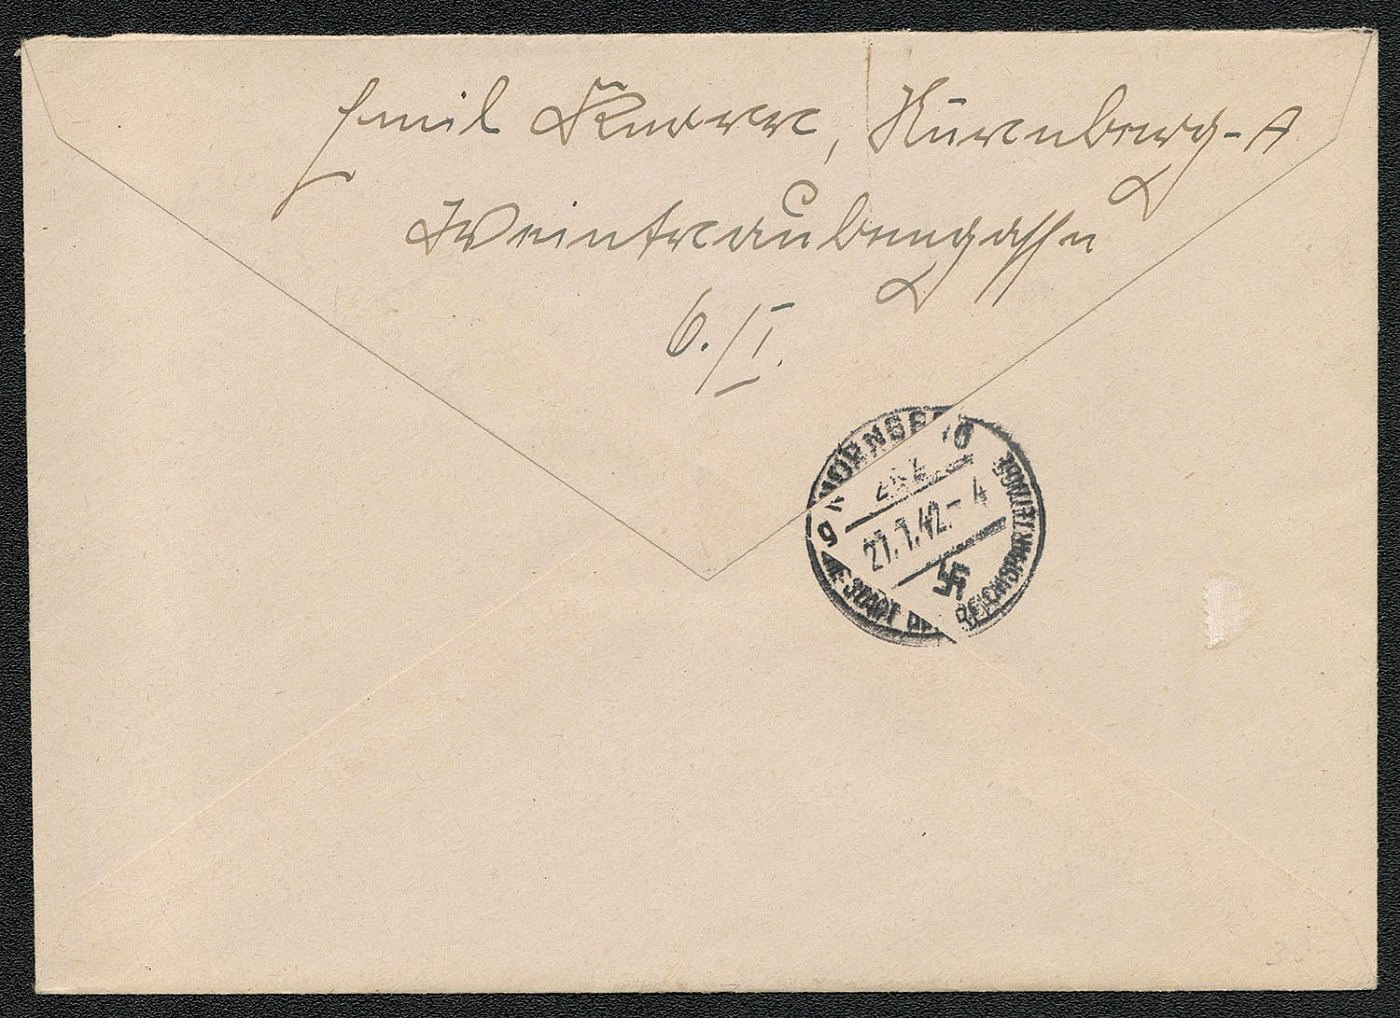 Emil Knorr, Nürnberg-A
Weintraubengasse
6./I.
NÜRNBERG
27.1.42.-4
g
DIE STADT DER REICHSPARTEITAGE